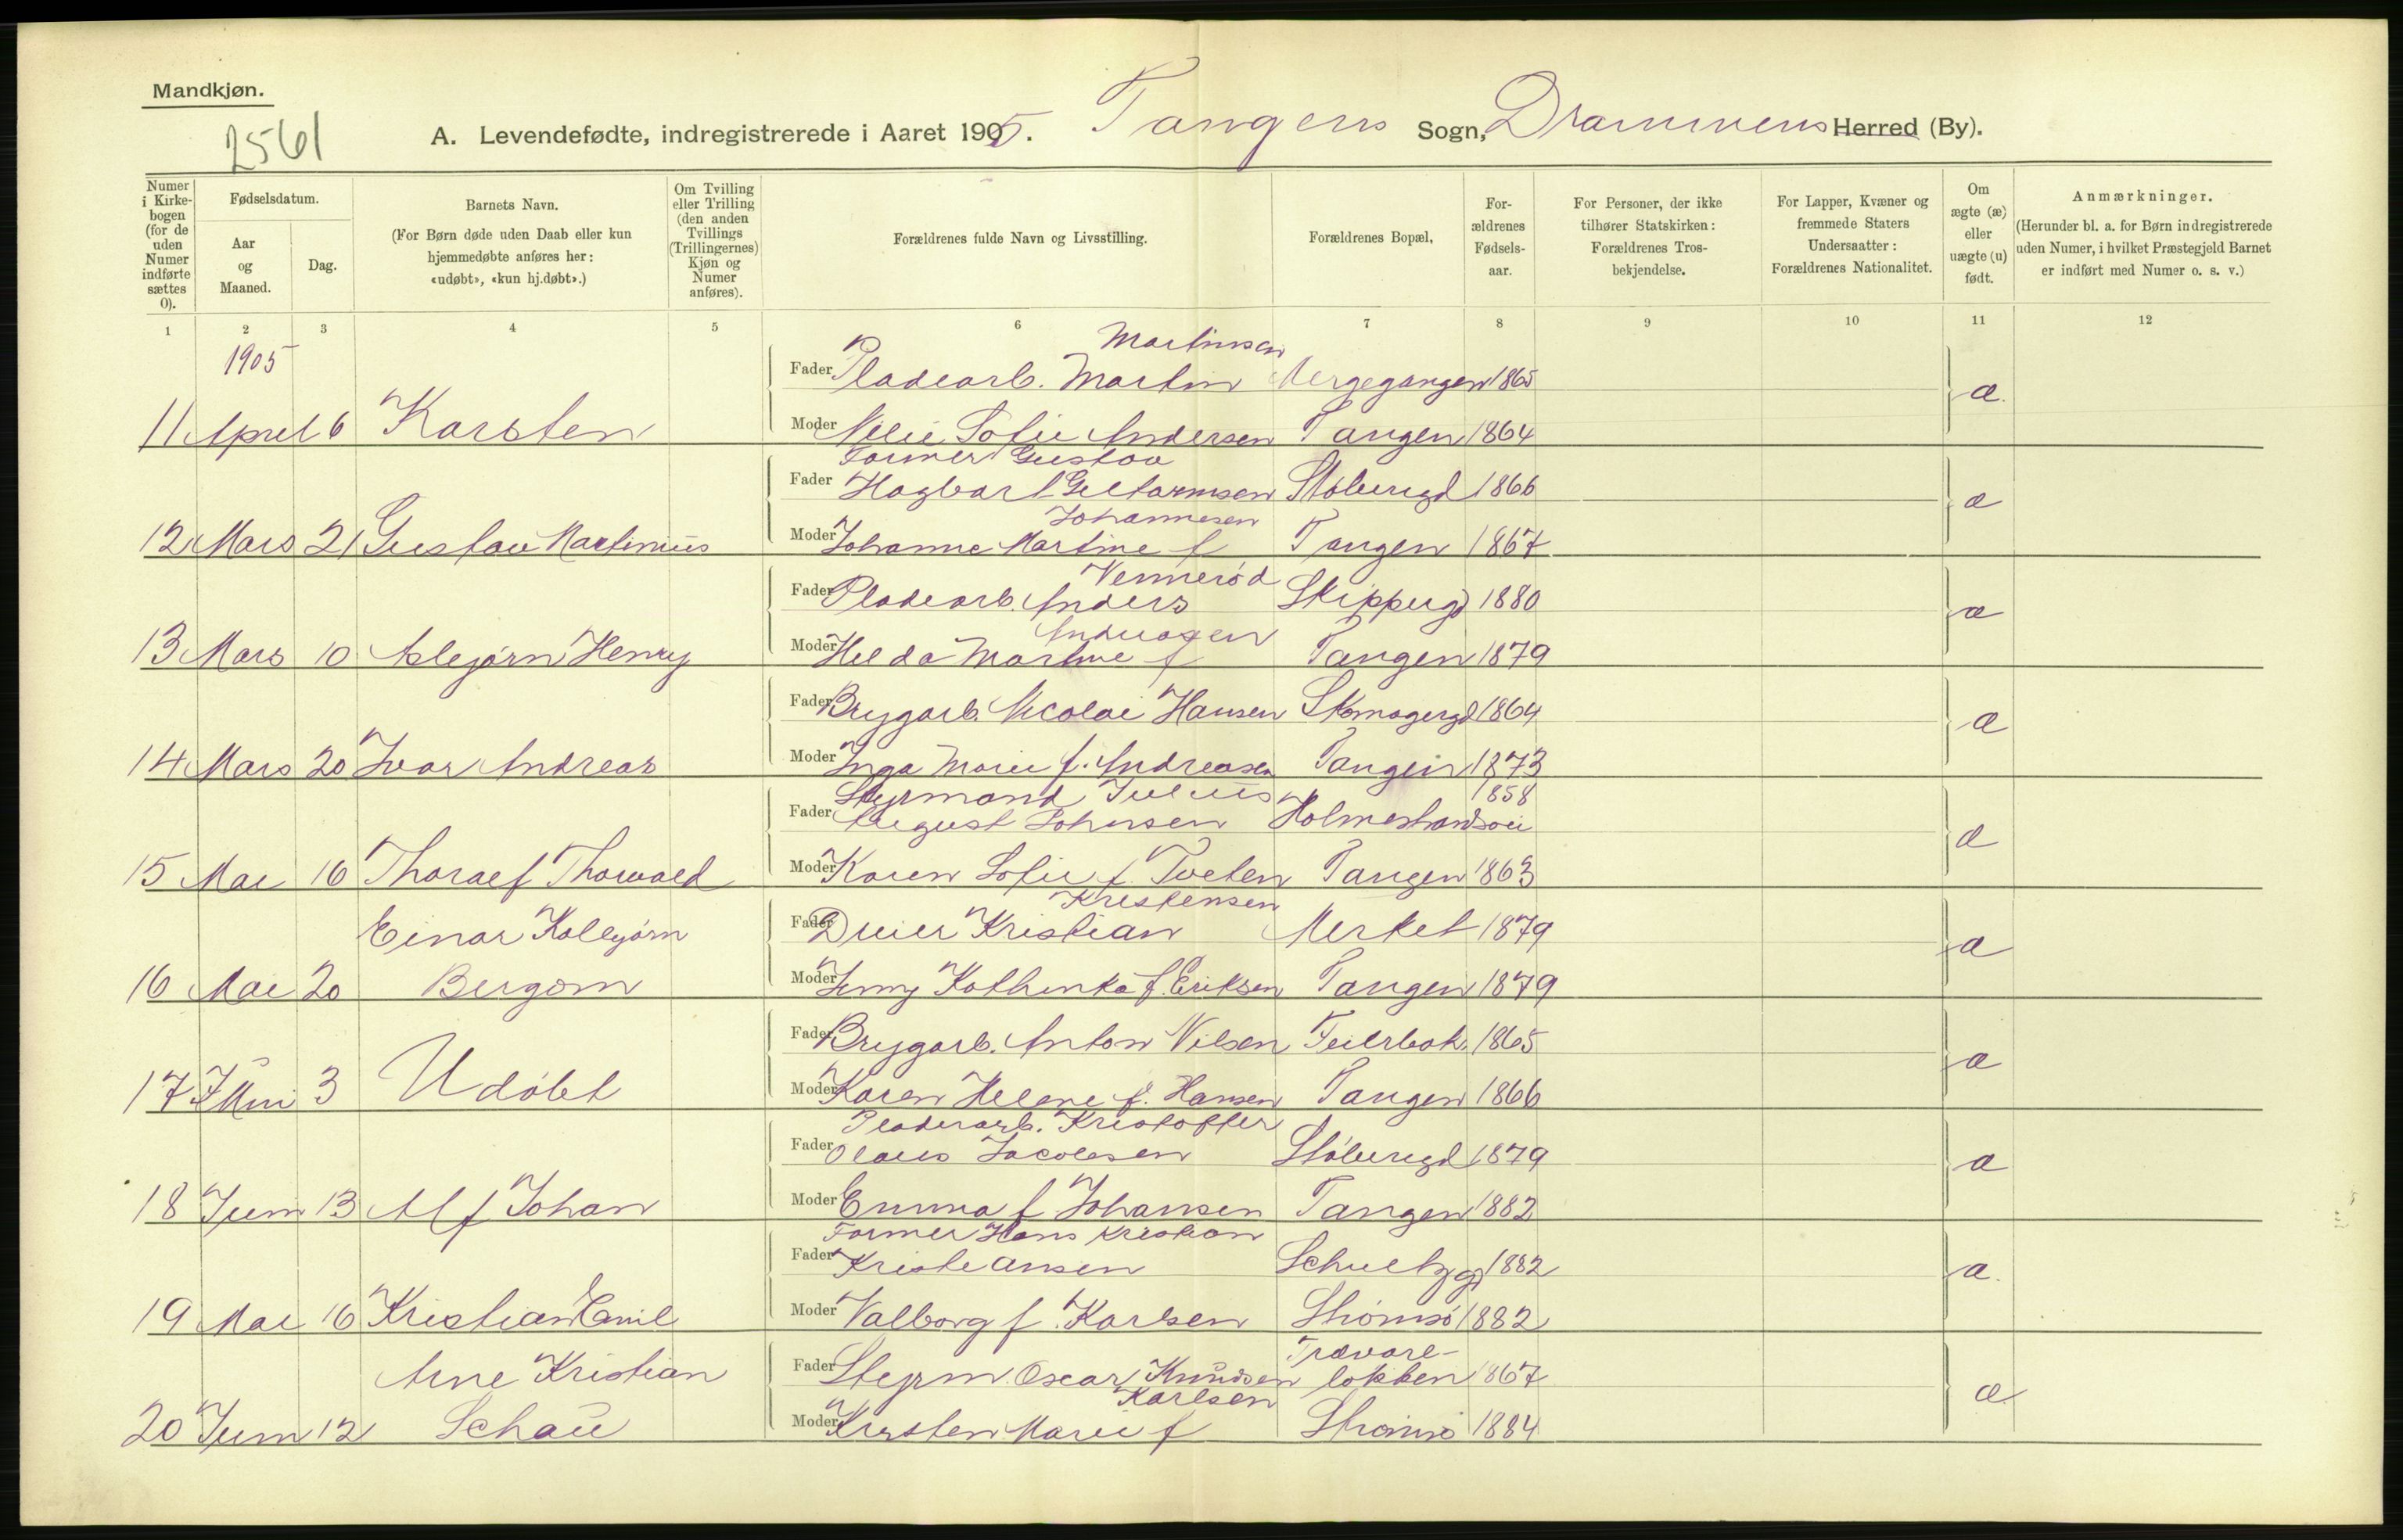 Mandkjøn.
2561
A. Levendefødte, indregistrerede i Aaret 1905. Tangens Sogn, Drammens Herred (By).
Numer i Kirkebogen (for de uden Numer indførte sættes 0).
Fødselsdatum.
Aar og Maaned.
Dag.
Barnets Navn.
(For Børn døde uden Daab eller kun hjemmedøbte anføres her: «udøbt», «kun hj.døbt».)
Om Tvilling eller Trilling (den anden Tvillings (Trillingernes) Kjøn og Numer anføres).
Forældrenes fulde Navn og Livsstilling.
Forældrenes Bopæl,
Forældrenes Fødselsaar.
For Personer, der ikke tilhører Statskirken: Forældrenes Trosbekjendelse.
For Lapper, Kvæner og fremmede Staters Undersaatter: Forældrenes Nationalitet.
Om ægte (æ) eller uægte (u) født.
Anmærkninger.
(Herunder bl. a. for Børn indregistrerede uden Numer, i hvilket Præstegjeld Barnet er indført med Numer o. s. v.)
1 2 3 4 5 6 7 8 9 10 11 12
1905
Martinsen
Fader Pladearb. Martin 1865
æ
11 April 6 Karsten Moder Sofie Andersen Tangen 1864
Former Gustav
Fader Hagbart Støberigd 1866
æ
Johannesen
12 Mars 21 Gustav Martinius Moder Johanne Martine f Tangen 1867
Vennerød
Fader Pladearb. Anders Skipperg 1880
æ
13 Mars 10 Asbjørn Henry Moder Hilda Martine f Tangen 1879
Fader Brygarb. Nicolai Hansen Skomagergd 1864
æ
14 Mars 20 Ivar Andreas Moder Inga Marie f. Andreasen Tangen 1873
Styrmand Julius 1858
Fader August Johnsen Holmestrandsvei
æ
15 Mai 16 Thoralf Thorvald Moder Karen Sofie f. Tveten Tangen 1863
Kristensen
Einar Kolbjørn Fader Kristian Merket 1879
æ
16 Mai 20 Bergom Moder Jenny Kathinka f. Eriksen Tangen 1879
Fader Brygarb. Anton Nilsen Teilrbak. 1865
æ
17 Juni 3 Udøbt Moder Karen Helene f. Hansen Tangen 1866
Pladearb. Kristoffer
Fader Olaus Jacobsen Støberigd 1879
æ
18 Juni 13 Alf Johan Moder Emma f Johansen Tangen 1882
Former Hans Kristian
Fader Kristiansen Schultzgd 1882
æ
19 Mai 16 Kristian Emil Moder Valborg f. Karlsen Strømsø 1882
Trævare-
Arne Kristian Fader Styrm. Oscar Knudsen løkken 1867
æ
Karlsen
20 Juni 12 Schau Moder Kirsten Marie f Strømsø 1884